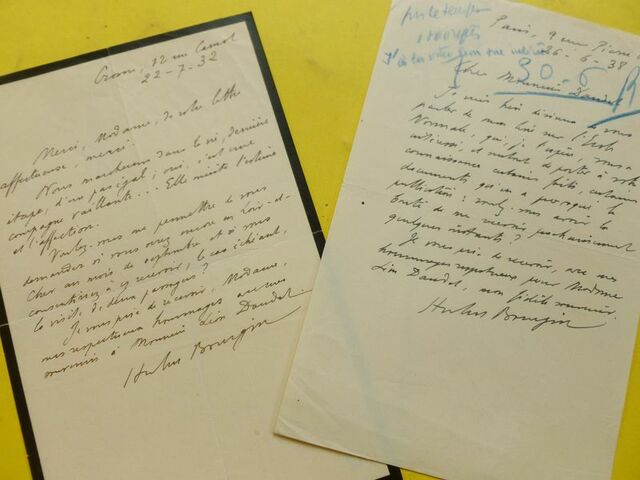 Crosne, 12 rue Carnot
22-7-32
Merci, Madame, de votre lettre
affectueuse, merci.
Nous marcherons dans la vie, dernière
étape, d'un pas égal; oui, c'est une
compagne vaillante... Elle mérite l'estime
et l'affection.
Voulez-vous me permettre de vous
demander si vous serez encore en Loir-et-
Cher au mois de septembre et si vous
consentiriez à y recevoir, le cas échéant,
la visite de deux
Je vous prie de recevoir, Madame,
mes respectueux hommages avec mes
souvenirs à Monsieur Léon Daudet.
Hubert Bourgin
Paris, 9 rue Pierre
26-6-38
30-6
Cher Monsieur Daudet
Je suis bien désireux de vous
parler de mon livre sur l'École
Normale, qui, je l'espère, vous a
intéressé, et surtout de porter à votre
connaissance certains faits, certains
documents qu'en a provoqué la
publication: voulez-vous avoir la
bonté de me recevoir prochainement
quelques instants?
Je vous prie de recevoir, avec mes
hommages respectueux pour Madame
Léon Daudet, mon fidèle souvenir.
Hubert Bourgin